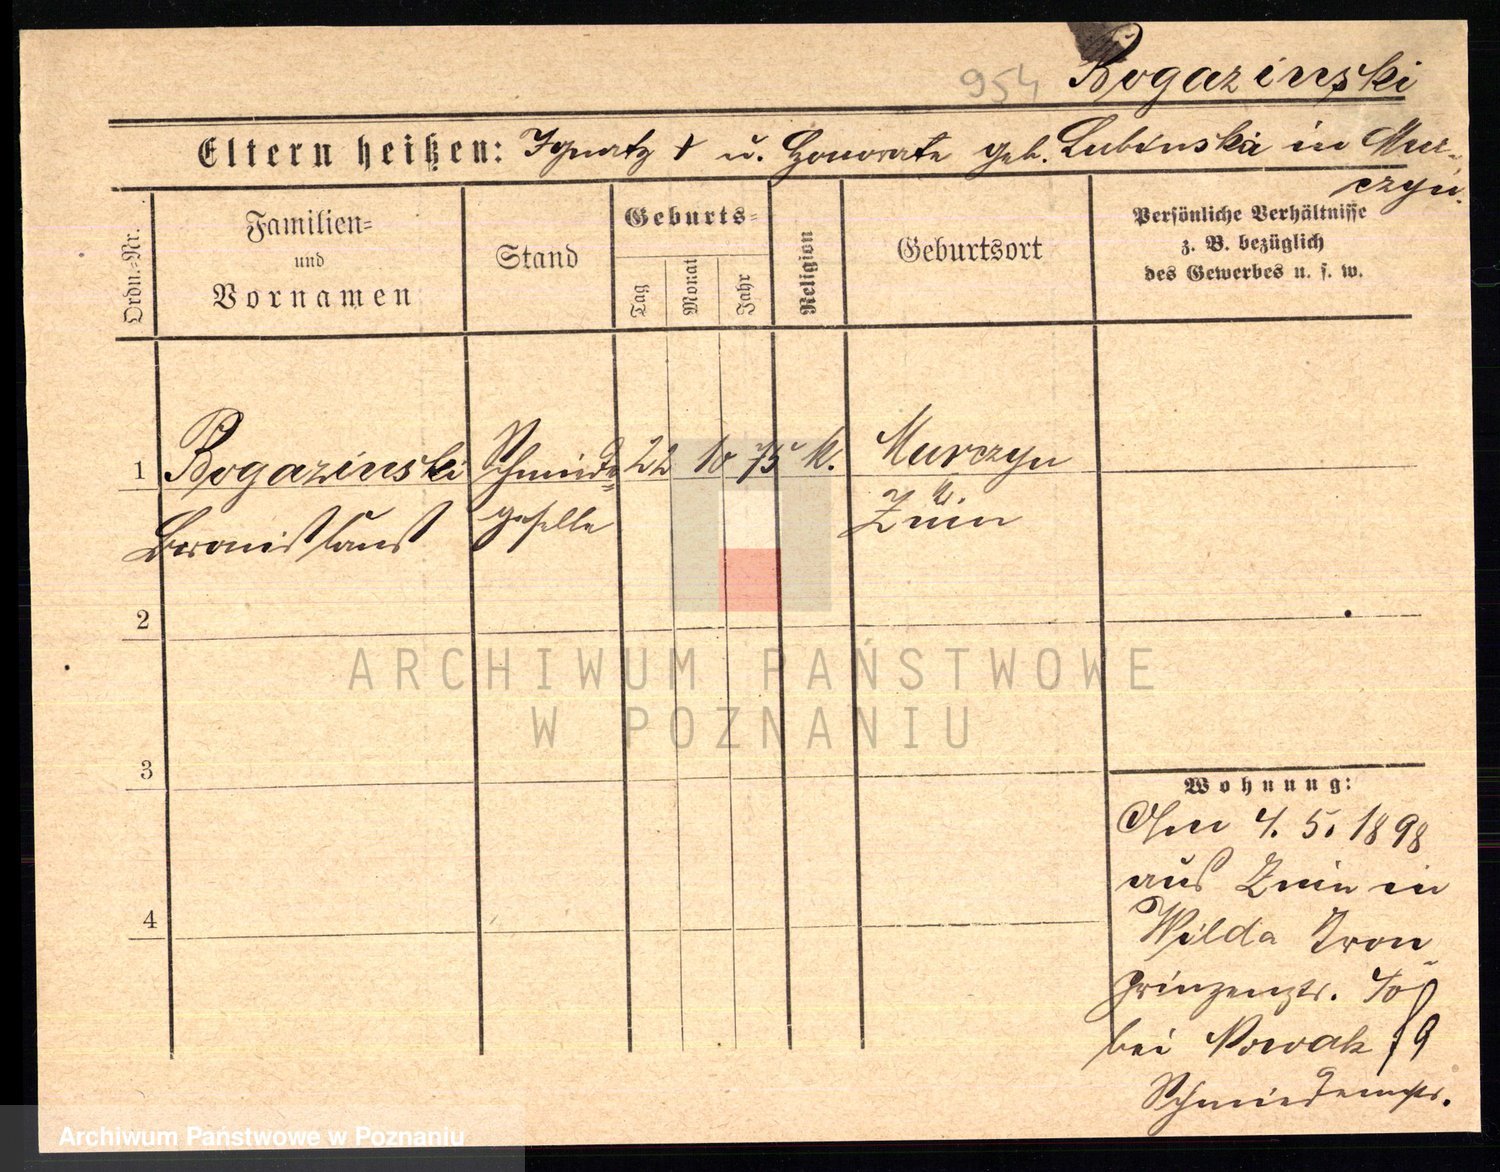 954 Rogazinski
Eltern heißen: Ignatz † u. Honorate geb. Lubinska in Mur-
czyn.
Ordn.-Nr.
Familien-
und
Vornamen
Stand
Geburts-
Tag
Monat
Jahr
Religion
Geburtsort
Persönliche Verhältnisse
z. B. bezüglich
des Gewerbes u. s. w.
1 Rogazinski Schmiede= 22 10 75 k. Murczyn
Bronislaus geselle Kr. Znin
2
3
4
Wohnung:
Am 4. 5. 1898
aus Znin in
Wilda Kron
prinzenstr.
bei Nowak
Schmiedemstr.
ARCHIWUM PAŃSTWOWE
W POZNANIU
Archiwum Państwowe w Poznaniu